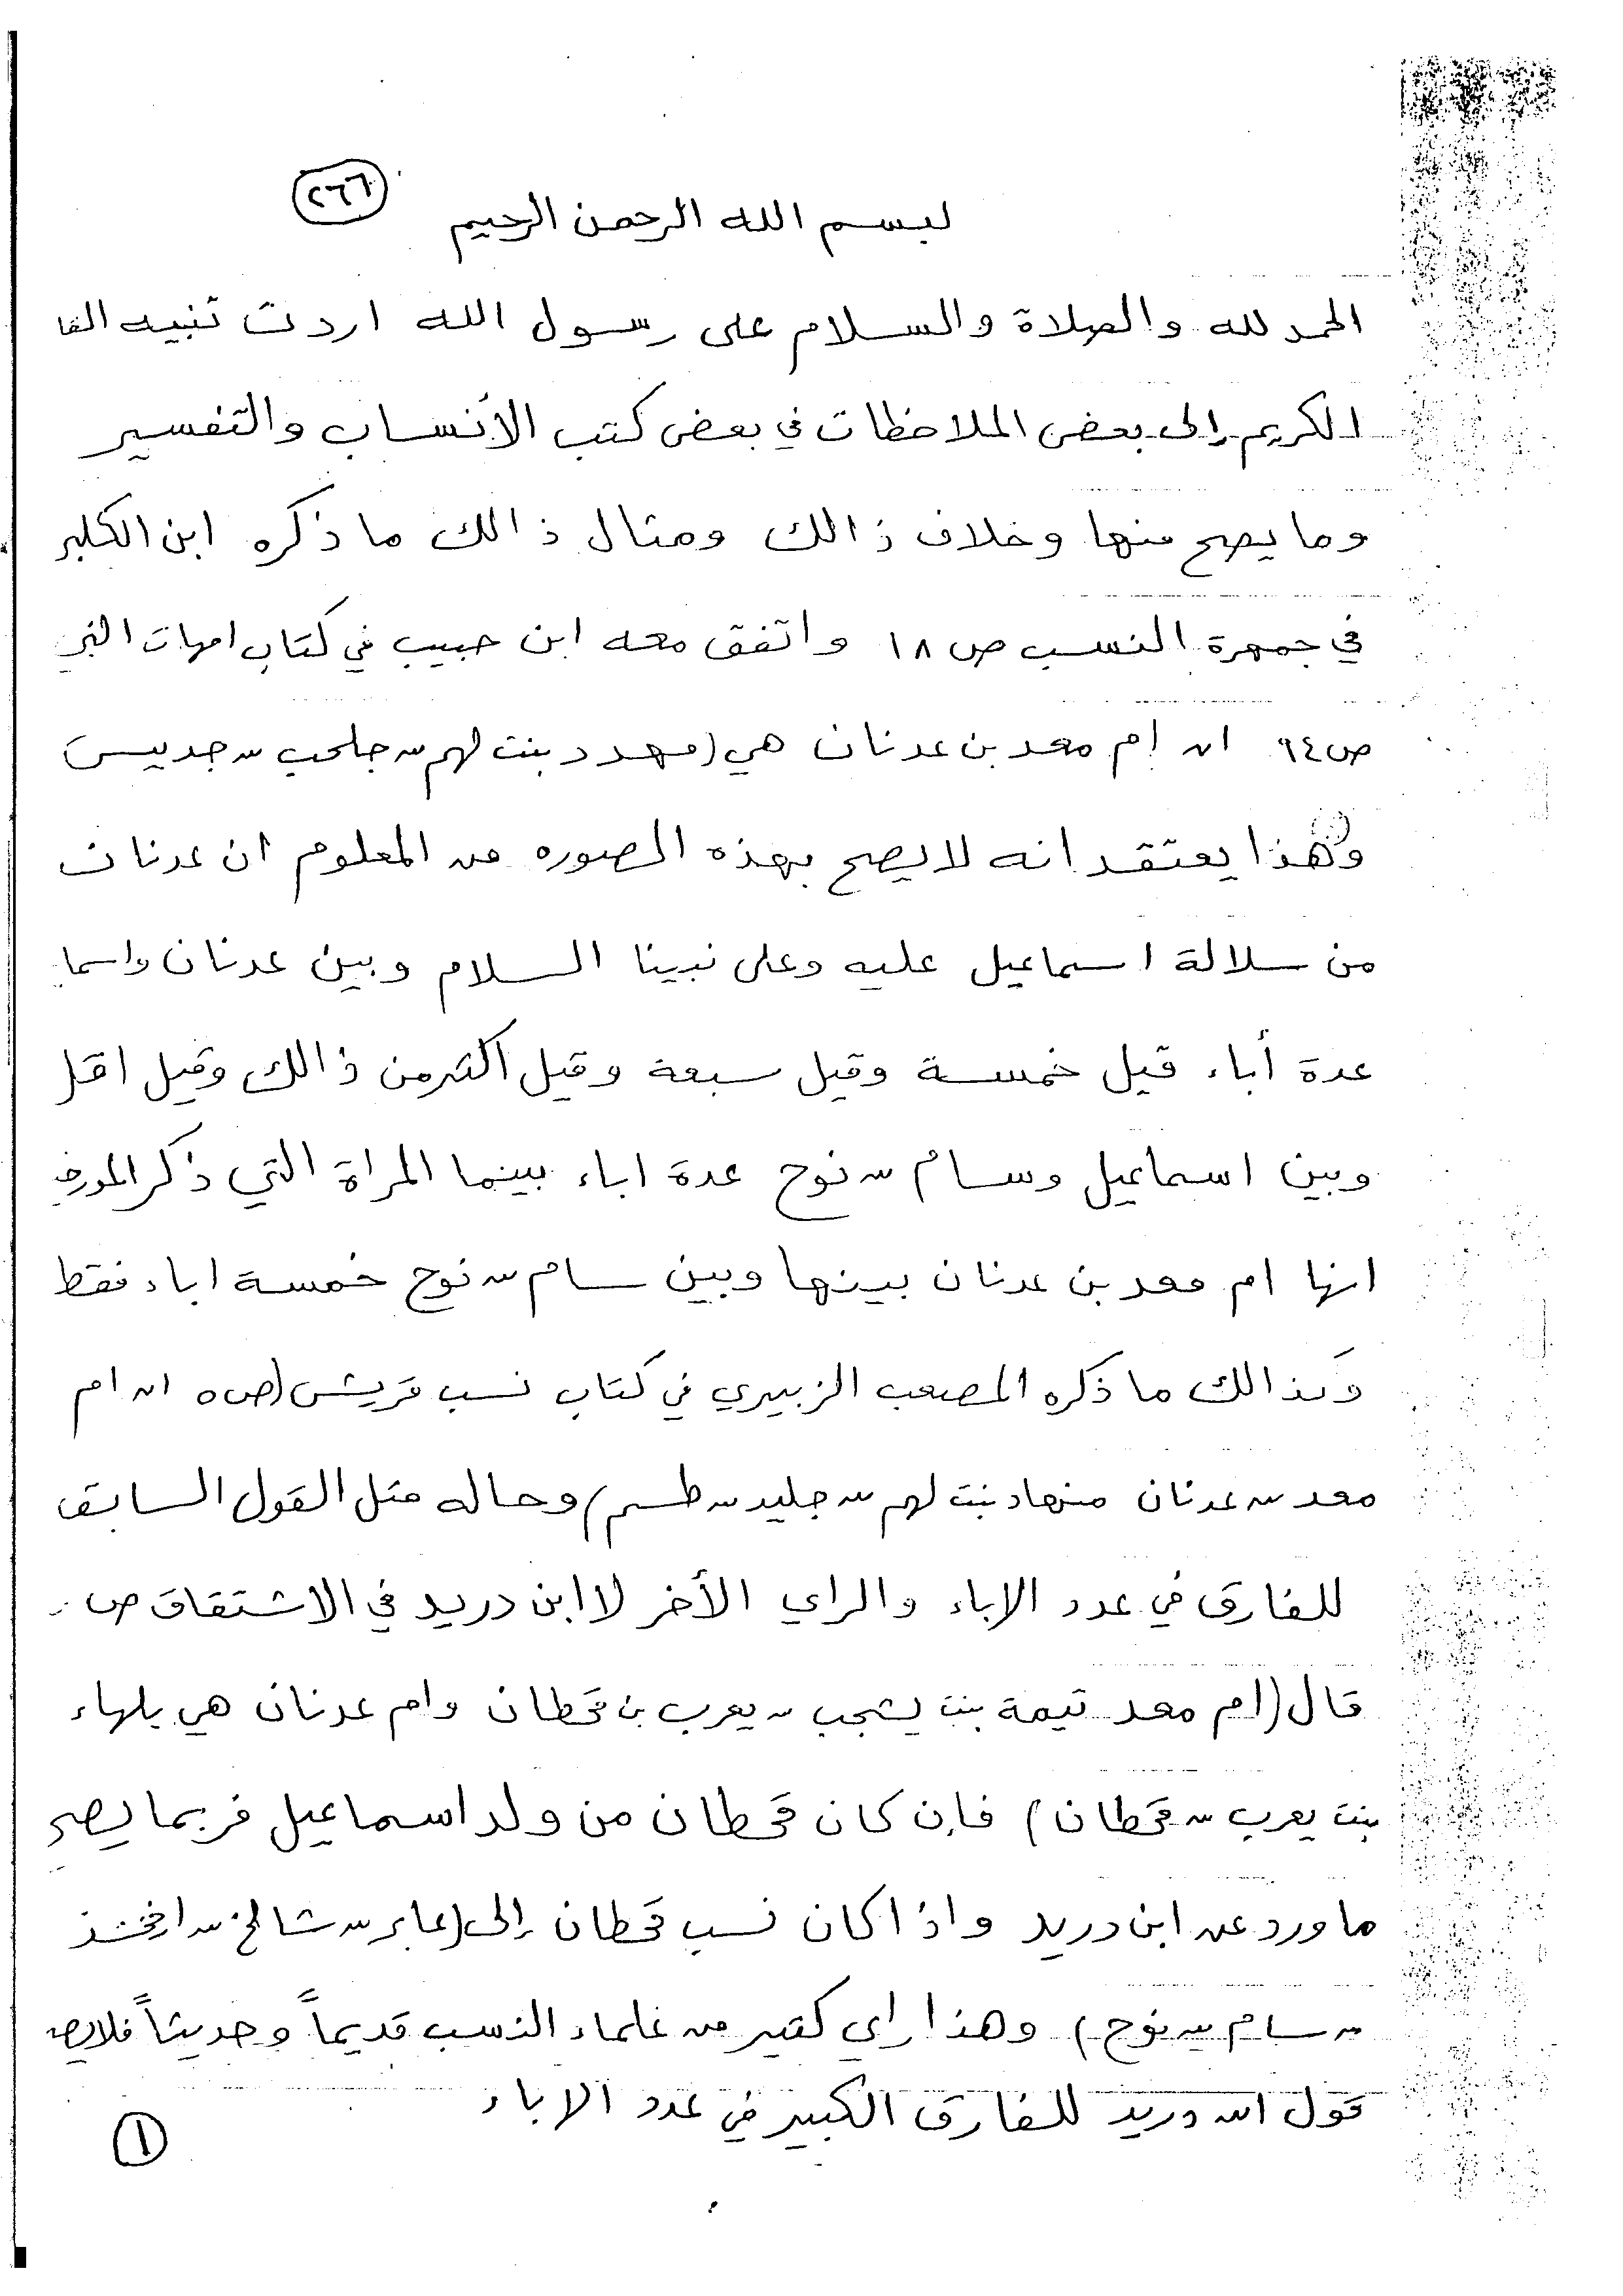 ٢٦٦
بسم الله الرحمن الرحيم
الحمد لله والصلاة والسلام على رسول الله اردت تنبيه القا
الكريم إلى بعض الملاحظات في بعض كتب الأنساب والتفسير
وما يصح منها وخلاف ذالك ومثال ذالك ما ذكره ابن الكلبي
في جمهرة النسب ص ١٨ واتفق معه ابن حبيب في كتاب امهات النبي
ص ٩٤ ان ام معد بن عدنان هي (مهدد بنت لهم بن جلحب بن جديس)
وهذا يعتقد انه لا يصح بهذه الصوره من المعلوم ان عدنان
من سلالة اسماعيل عليه وعلى نبينا السلام وبين عدنان واسما
عدة أباء قيل خمسة وقيل سبعة وقيل اكثر من ذالك وقيل اقل
وبين اسماعيل وسام بن نوح عدة اباء بينما المراة التي ذكر المورخ
انها ام معد بن عدنان بينها وبين سام بن نوح خمسة اباء فقط
وكذالك ما ذكره المصعب الزبيري في كتاب نسب قريش (ص ٥ ان ام
معد بن عدنان منهاد بنت لهم بن جليد بن طسم) وحاله مثل القول السابق
للفارق في عدد الاباء والراي الأخر لا ابن دريد في الاشتقاق ص
قال (ام معد تيمة بنت يشجب بن يعرب بن قحطان وام عدنان هي بلهاء
بنت يعرب بن قحطان) فإن كان قحطان من ولد اسماعيل فربما يصح
ما ورد عن ابن دريد واذا كان نسب قحطان إلى (عابر بن شالخ بن ارفخشذ
بن سام بن نوح) وهذا راي كثير من علماء النسب قديماً وحديثاً فلا يصح
قول ابن دريد للفارق الكبير في عدد الاباء
١